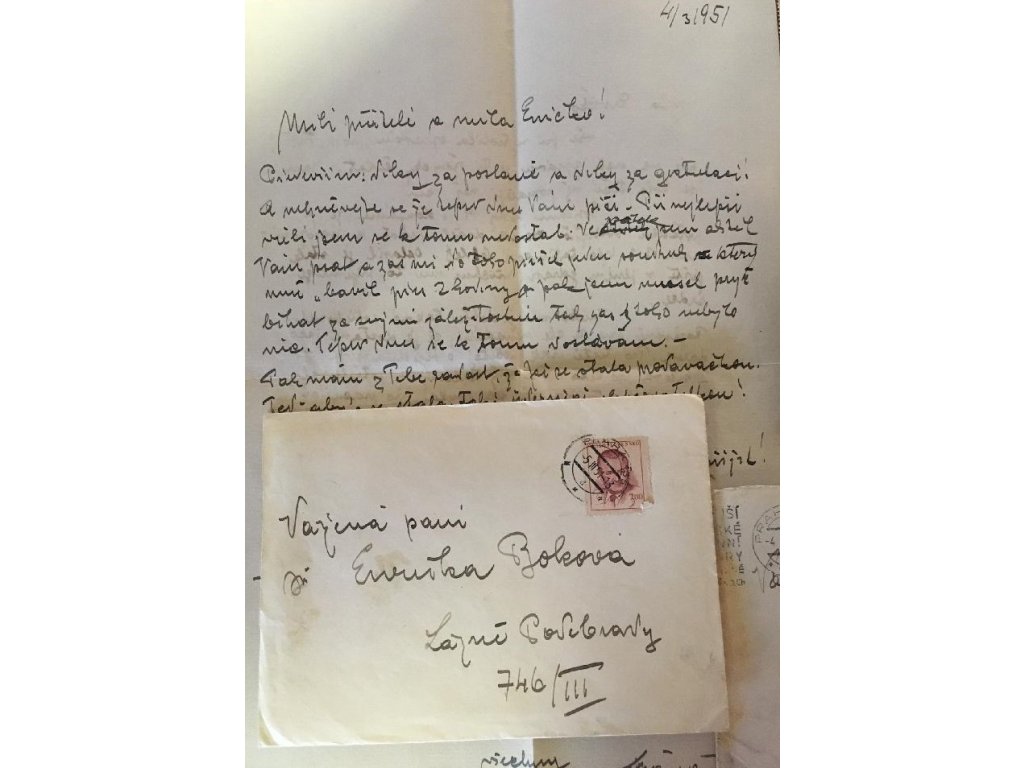 4/3 1951
Milí přátelé a milá Evičko!
Především: díky za poslané a díky za gratulaci!
A nehněvejte se že teprv dnes Vám píši. Při nejlepší
vůli jsem se k tomu nedostal. jsem začal
Vám psát a zas mi do toho přišel jeden soudruh který
mně „bavil přes 2 hodiny a pak jsem musel pryč
běhat za svými záležitostmi tak zas z toho nebylo
nic. Teprv dnes se k tomu dostávám. –
Tak mám z Tebe radost, že jsi se stala prodavačkou.
Teď aby se stala
Vážená paní
Evička Boková
Lázně Poděbrady
746/III
3.00
všechny